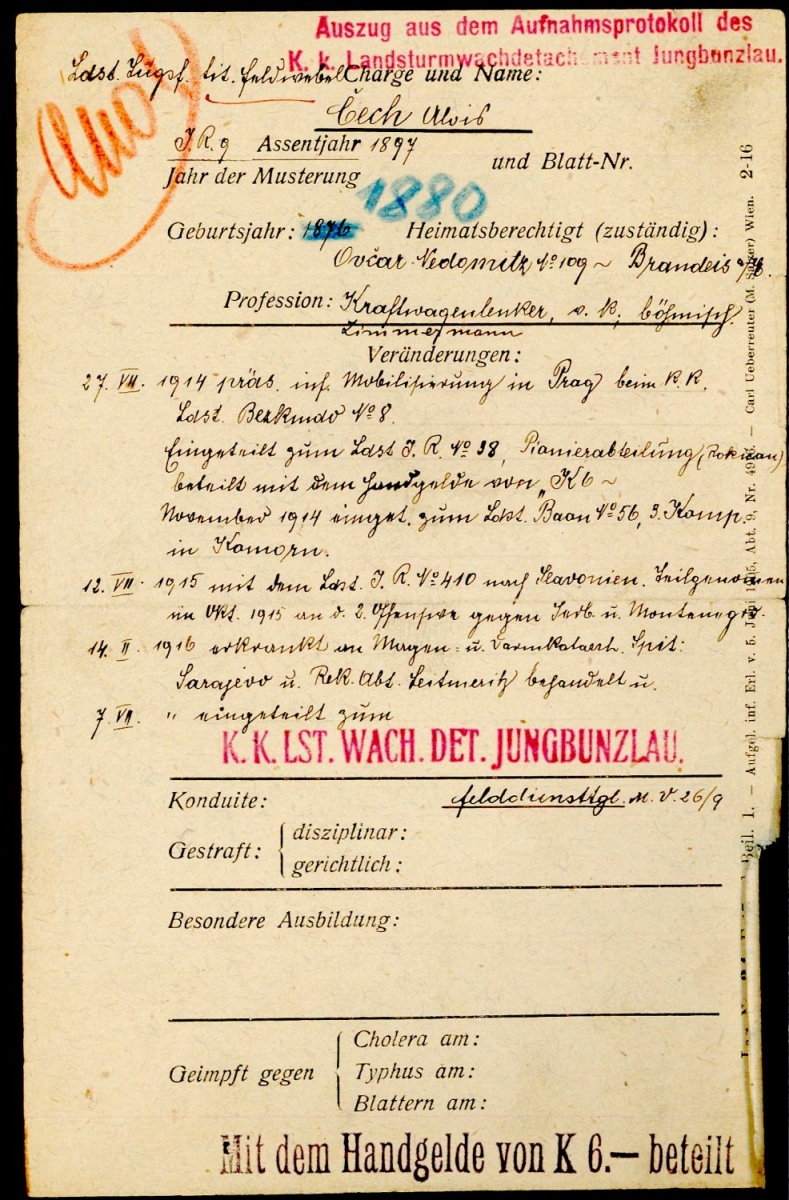 Auszug aus dem Aufnahmsprotokoll des
K. k. Landsturmwachdetachement Jungbunzlau.
Ldst. Zugsf. tit. Feldwebel Charge und Name:
Čech Alois
I. R. 9 Assentjahr 1897
Jahr der Musterung und Blatt-Nr.
1880
Geburtsjahr: 1876 Heimatsberechtigt (zuständig):
Ovčar Nedomitz No 109 ~ Brandeis a/E.
Profession: Kraftwagenlenker, v. k. böhmisch.
Zimmermann
Veränderungen:
27. VII. 1914 präs. inf. Mobilisierung in Prag beim k. k.
Ldst. Bezkmdo No 8.
Eingeteilt zum Ldst I. R. No 28, Pionierabteilung (Rokitzan)
beteilt mit dem Handgelde von K 6 ~
November 1914 einget. zum Ldst. Baon No 56, 3. Komp.
in Komorn.
12. VII. 1915 mit dem Ldst. I. R. No 410 nach Slavonien. Teilgenomen
im Okt. 1915 an d. 2. Offensive gegen Serb. u. Montenegro.
14. II. 1916 erkrankt an Magen- u. Darmkatarh. Spit:
Sarajevo u. Rek. Abt. Leitmeritz behandelt u.
7. VII. " eingeteilt zum
K. K. LST. WACH. DET. JUNGBUNZLAU.
Konduite: felddiensttgl. M. V. 26/9
Gestraft: disziplinar:
gerichtlich:
Besondere Ausbildung:
Geimpft gegen Cholera am:
Typhus am:
Blattern am:
Mit dem Handgelde von K 6.— beteilt
Beil. 1. — Aufgel. inf. Erl. v. 5. Abt. 9, Nr. — Carl Ueberreuter (M. Salzer) Wien. 2-16